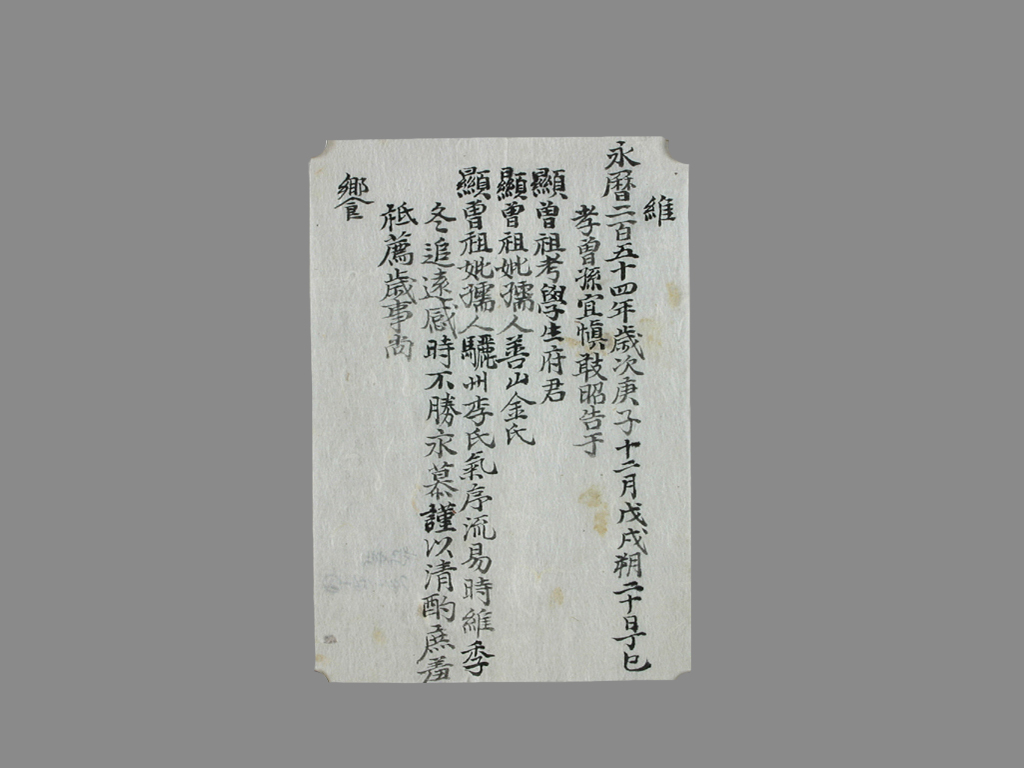 維
永曆二百五十四年歲次庚子十二月戊戌朔二十日丁巳
孝曾孫宜愼敢昭告于
顯曾祖考學生府君
顯曾祖妣孺人善山金氏
顯曾祖妣孺人驪州李氏氣序流易時維季
冬追遠感時不勝永慕謹以清酌庶羞
祗薦歲事尚
饗